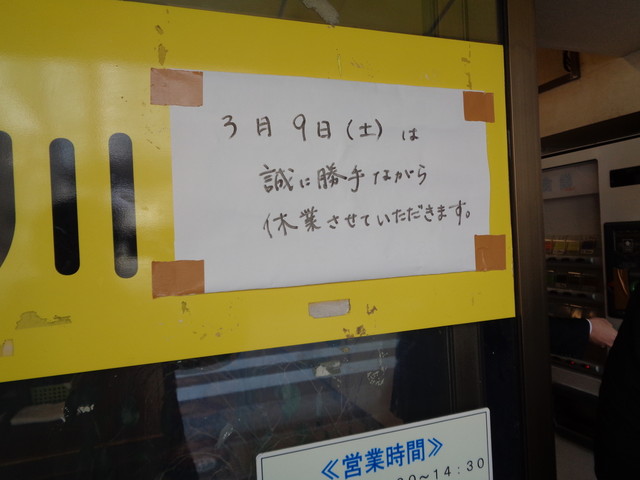 3月9日(土)は
誠に勝手ながら
休業させていただきます。
川
≪営業時間≫
00~14:30